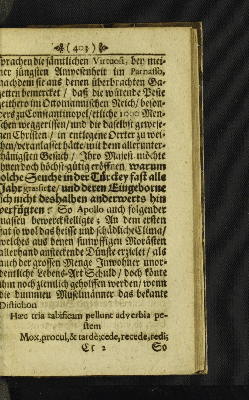 (403)
sprachen die sämtlichen Virtuosi, bey mei-
ner jüngsten Anwesenheit im Parnasso,
nachdem sie aus denen überbrachten Ga-
zetten bemercket / daß die wütende Peste
seithero im Ottomannischen Reich / beson-
ders zu Constantinopel / etliche 1000 Men-
schen weggerissen / und die daselbst gewese-
nen Christen / in entlegene Oerter zu wei-
chen / veranlasset hätte / mit dem allerunter-
thänigsten Gesuch / Ihro Majest. möchte
ihnen doch höchst-gütig eröffnen, warum
solche Seuche in der Türckey fast alle
Jahr grassirte / und deren Eingeborne
sich nicht deshalben anderwerts hin
verfügten: So Apollo auch folgender
massen bewerckstelligte: An dem ersten
hat so wol das heisse und schädliche Clima /
welches aus denen sumpffigen Morästen
allerhand ansteckende Dünste erziehet / als
auch der grossen Menge Inwohner unor-
dentliche Lebens-Art Schuld / doch könte
ihm noch ziemlich geholffen werden / wenn
die dummen Muselmänner das bekante
Distichon
Hæc tria tabificam pellunt adverbia pe-
stem
Mox, procul, & tardè; cede, recede, redi;
Cc 2 So